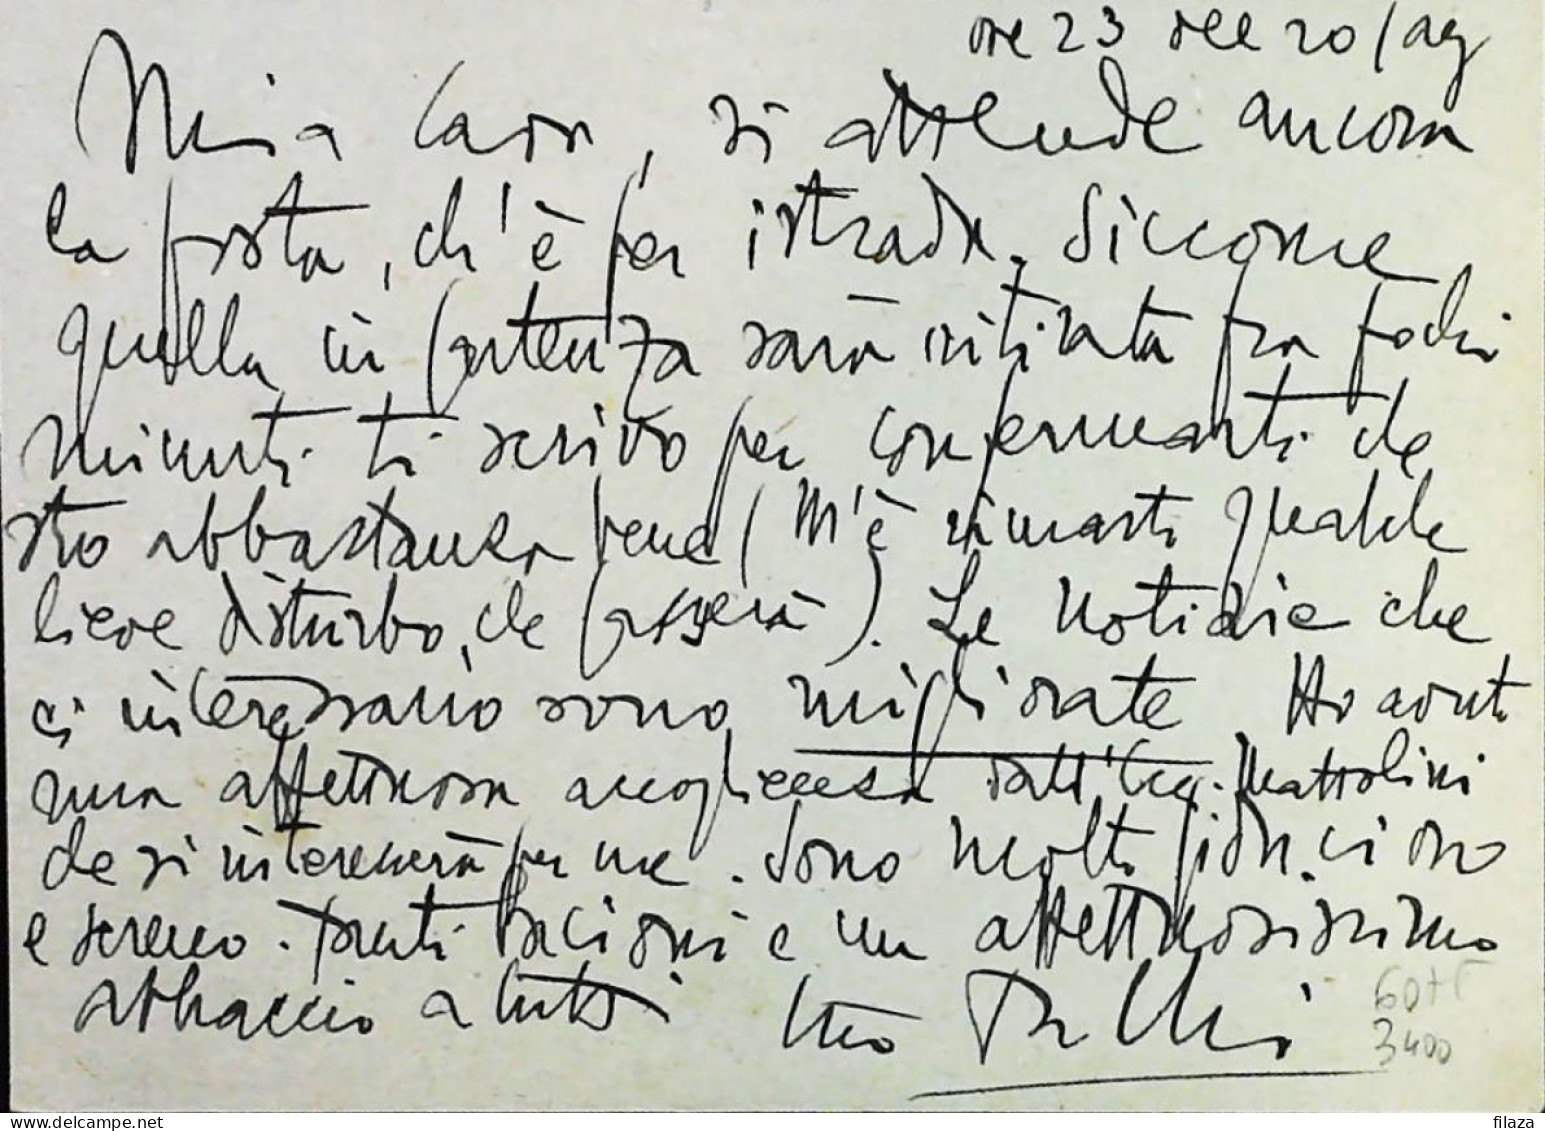 ore 23 del 20/ag
Mia cara, si attende ancora
la posta, ch'è per istrada. Siccome
quella in partenza sarà ritirata fra pochi
minuti ti scrivo per confermarti che
sto abbastanza bene (m'è rimasto qualche
lieve disturbo, che passerà). Le notizie che
ci interessano sono migliorate. Ho avuto
una affettuosa accoglienza dall' Mattolini
che si interesserà per me. Sono molto fiducioso
e sereno. Tanti bacioni e un affettuosissimo
abbraccio a tutti tuo
60+5
3400
filaza